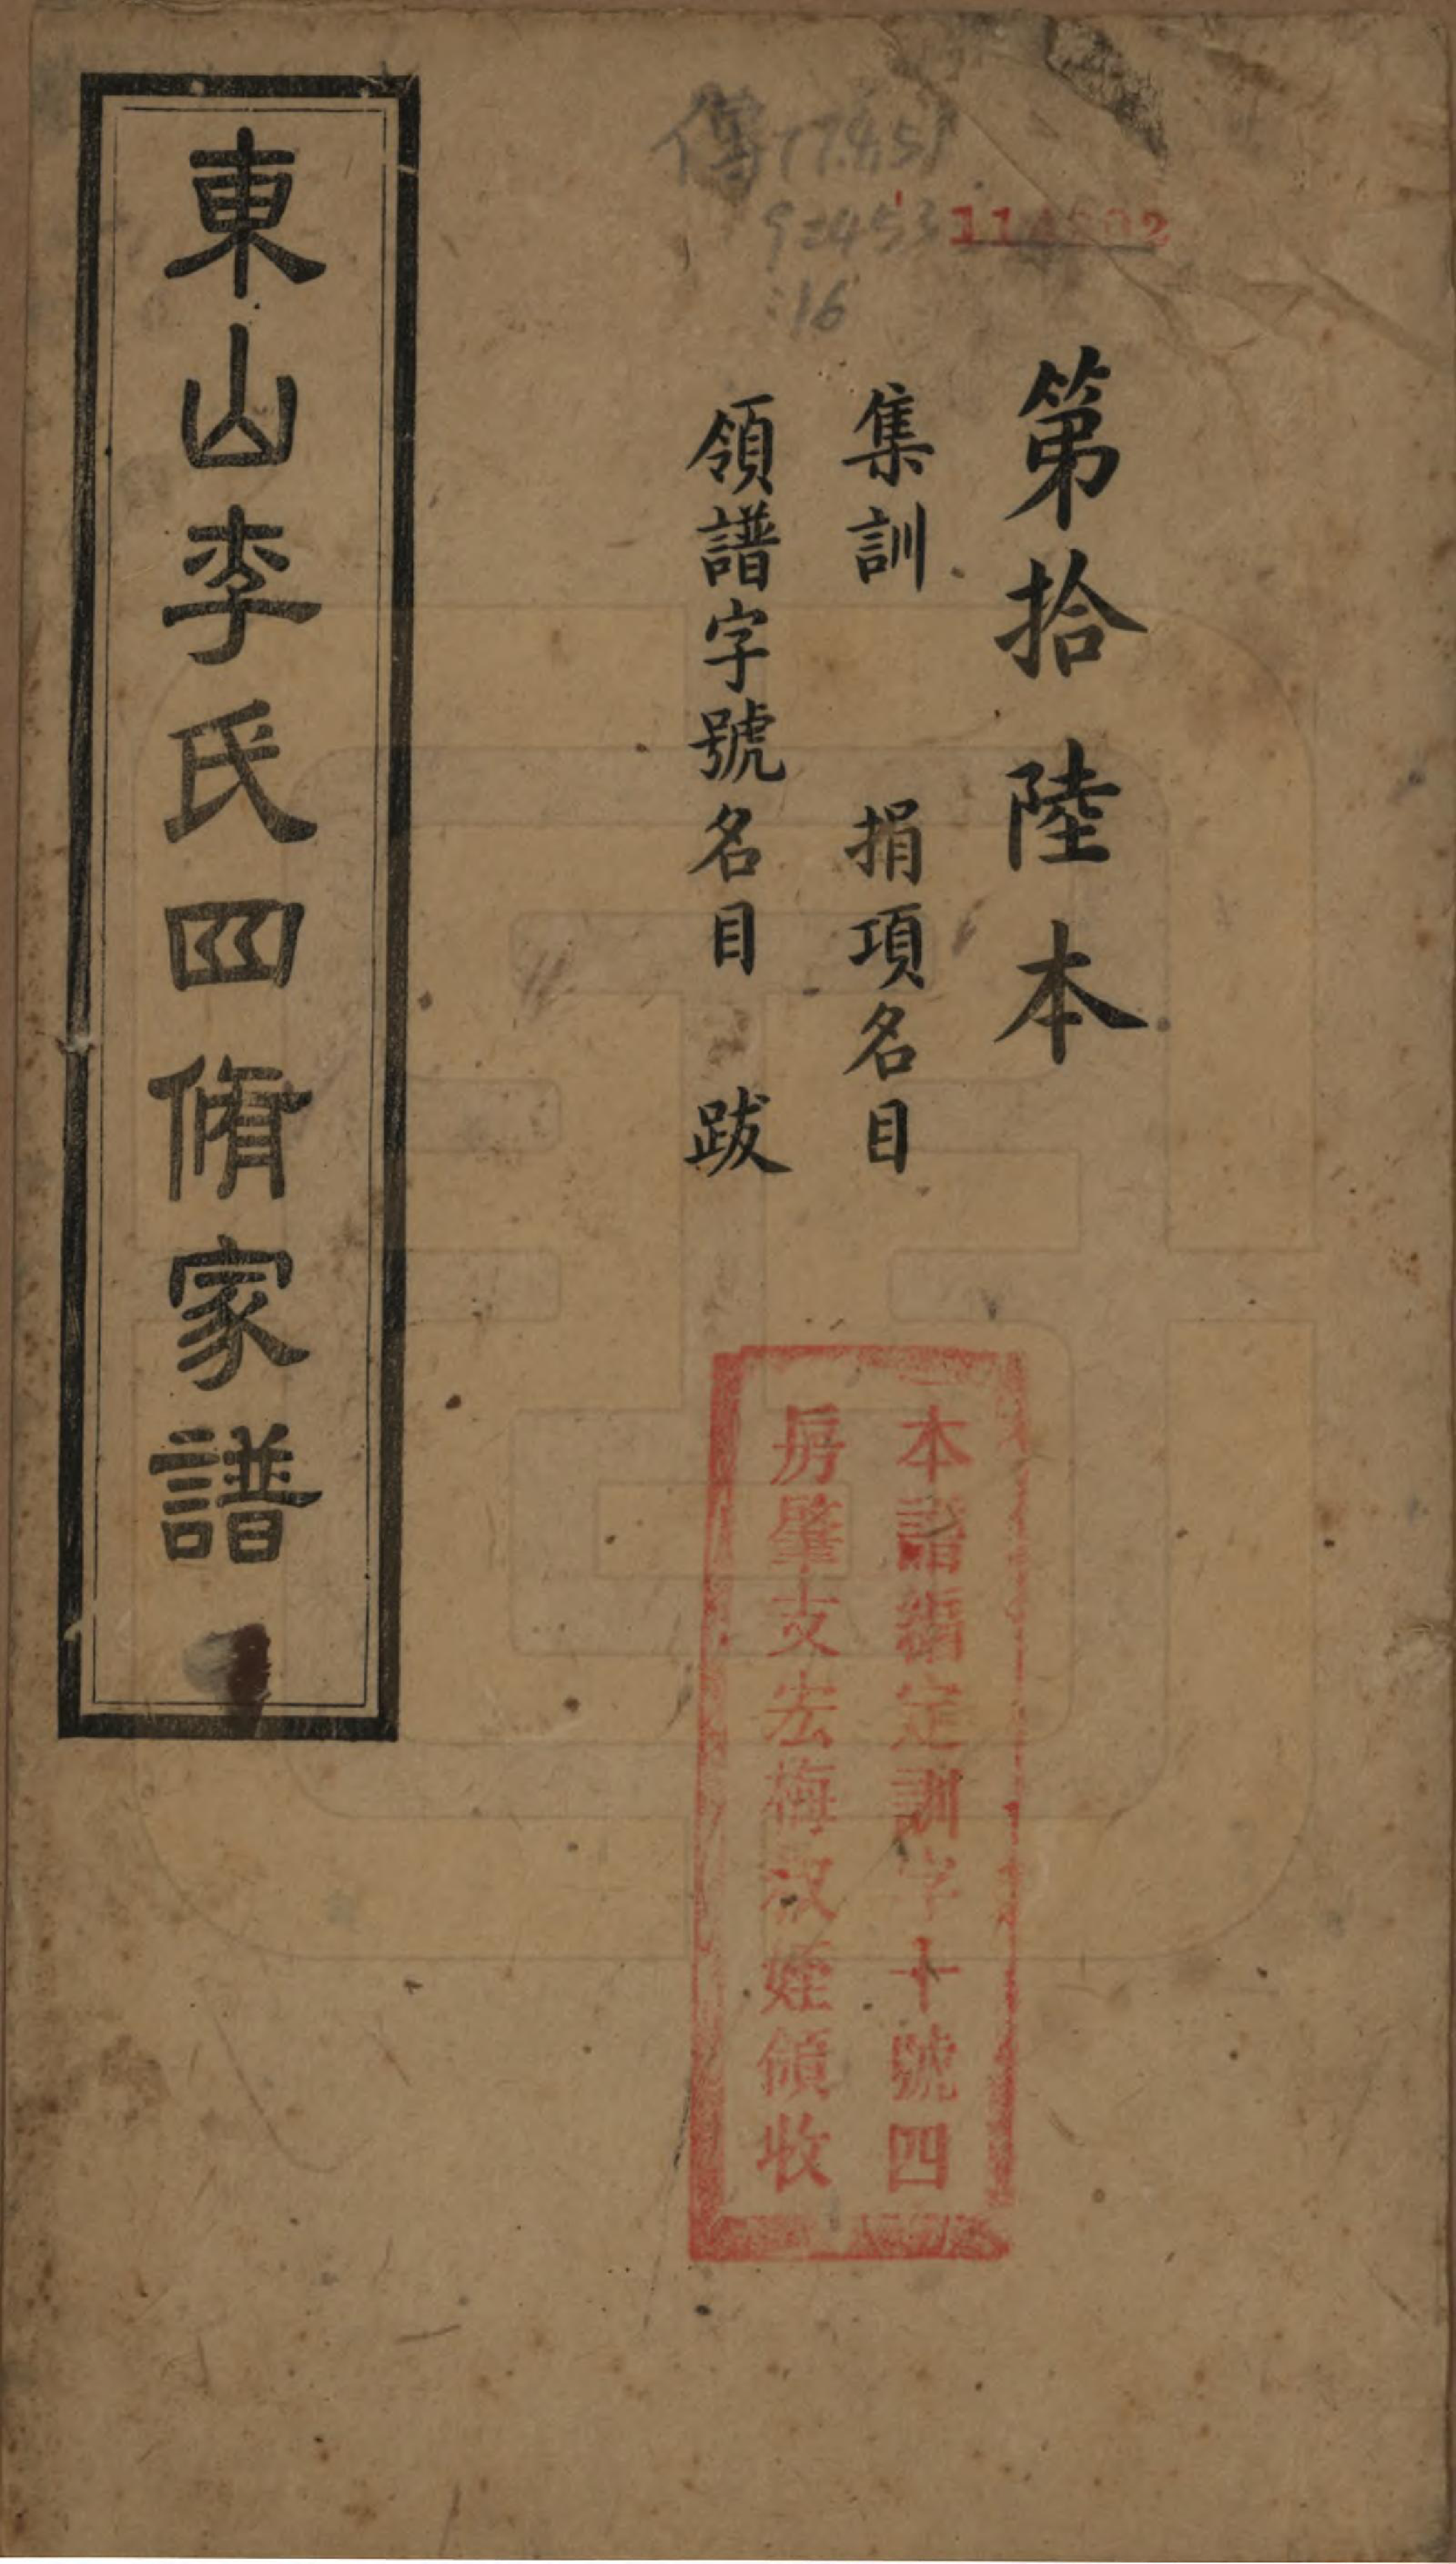 第拾陸本
集訓 捐項名目
領譜字號名目 跋
東山李氏四脩家譜
本譜編定訓字十號四
房肇支宏梅淑姪領收
傳
92453
:16